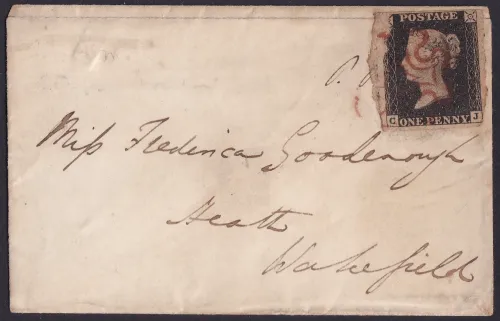 POSTAGE
C J
ONE PENNY
Miss Frederica Goodenough
Heath
Wakefield